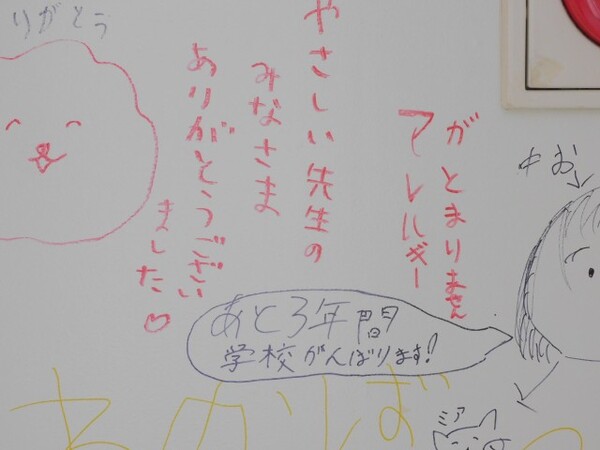 アレルギー
がとまりません
やさしい先生の
みなさま
ありがとうござい
ました♡
りがとう
あと3年間
学校がんばります!
ミア